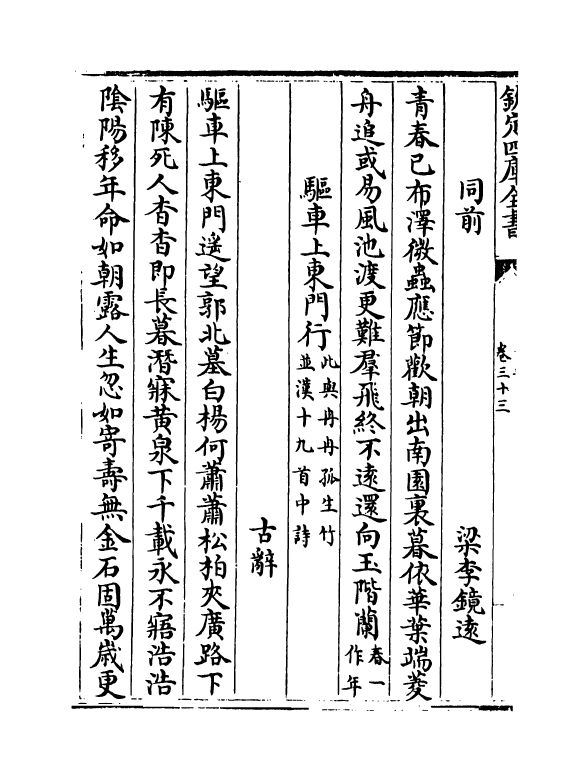 欽定四庫全書
卷三十三
同前 梁李鏡遠
青春已布澤微蟲應節歡朝出南園裏暮依華葉端菱
舟追或易風池渡更難羣飛終不遠還向玉階蘭春一作年
驅車上東門行此與冉冉孤生竹並漢十九首中詩
古辭
驅車上東門遙望郭北墓白楊何蕭蕭松柏夾廣路下
有陳死人杳杳即長暮潛寐黃泉下千載永不寤浩浩
陰陽移年命如朝露人生忽如寄壽無金石固萬歲更